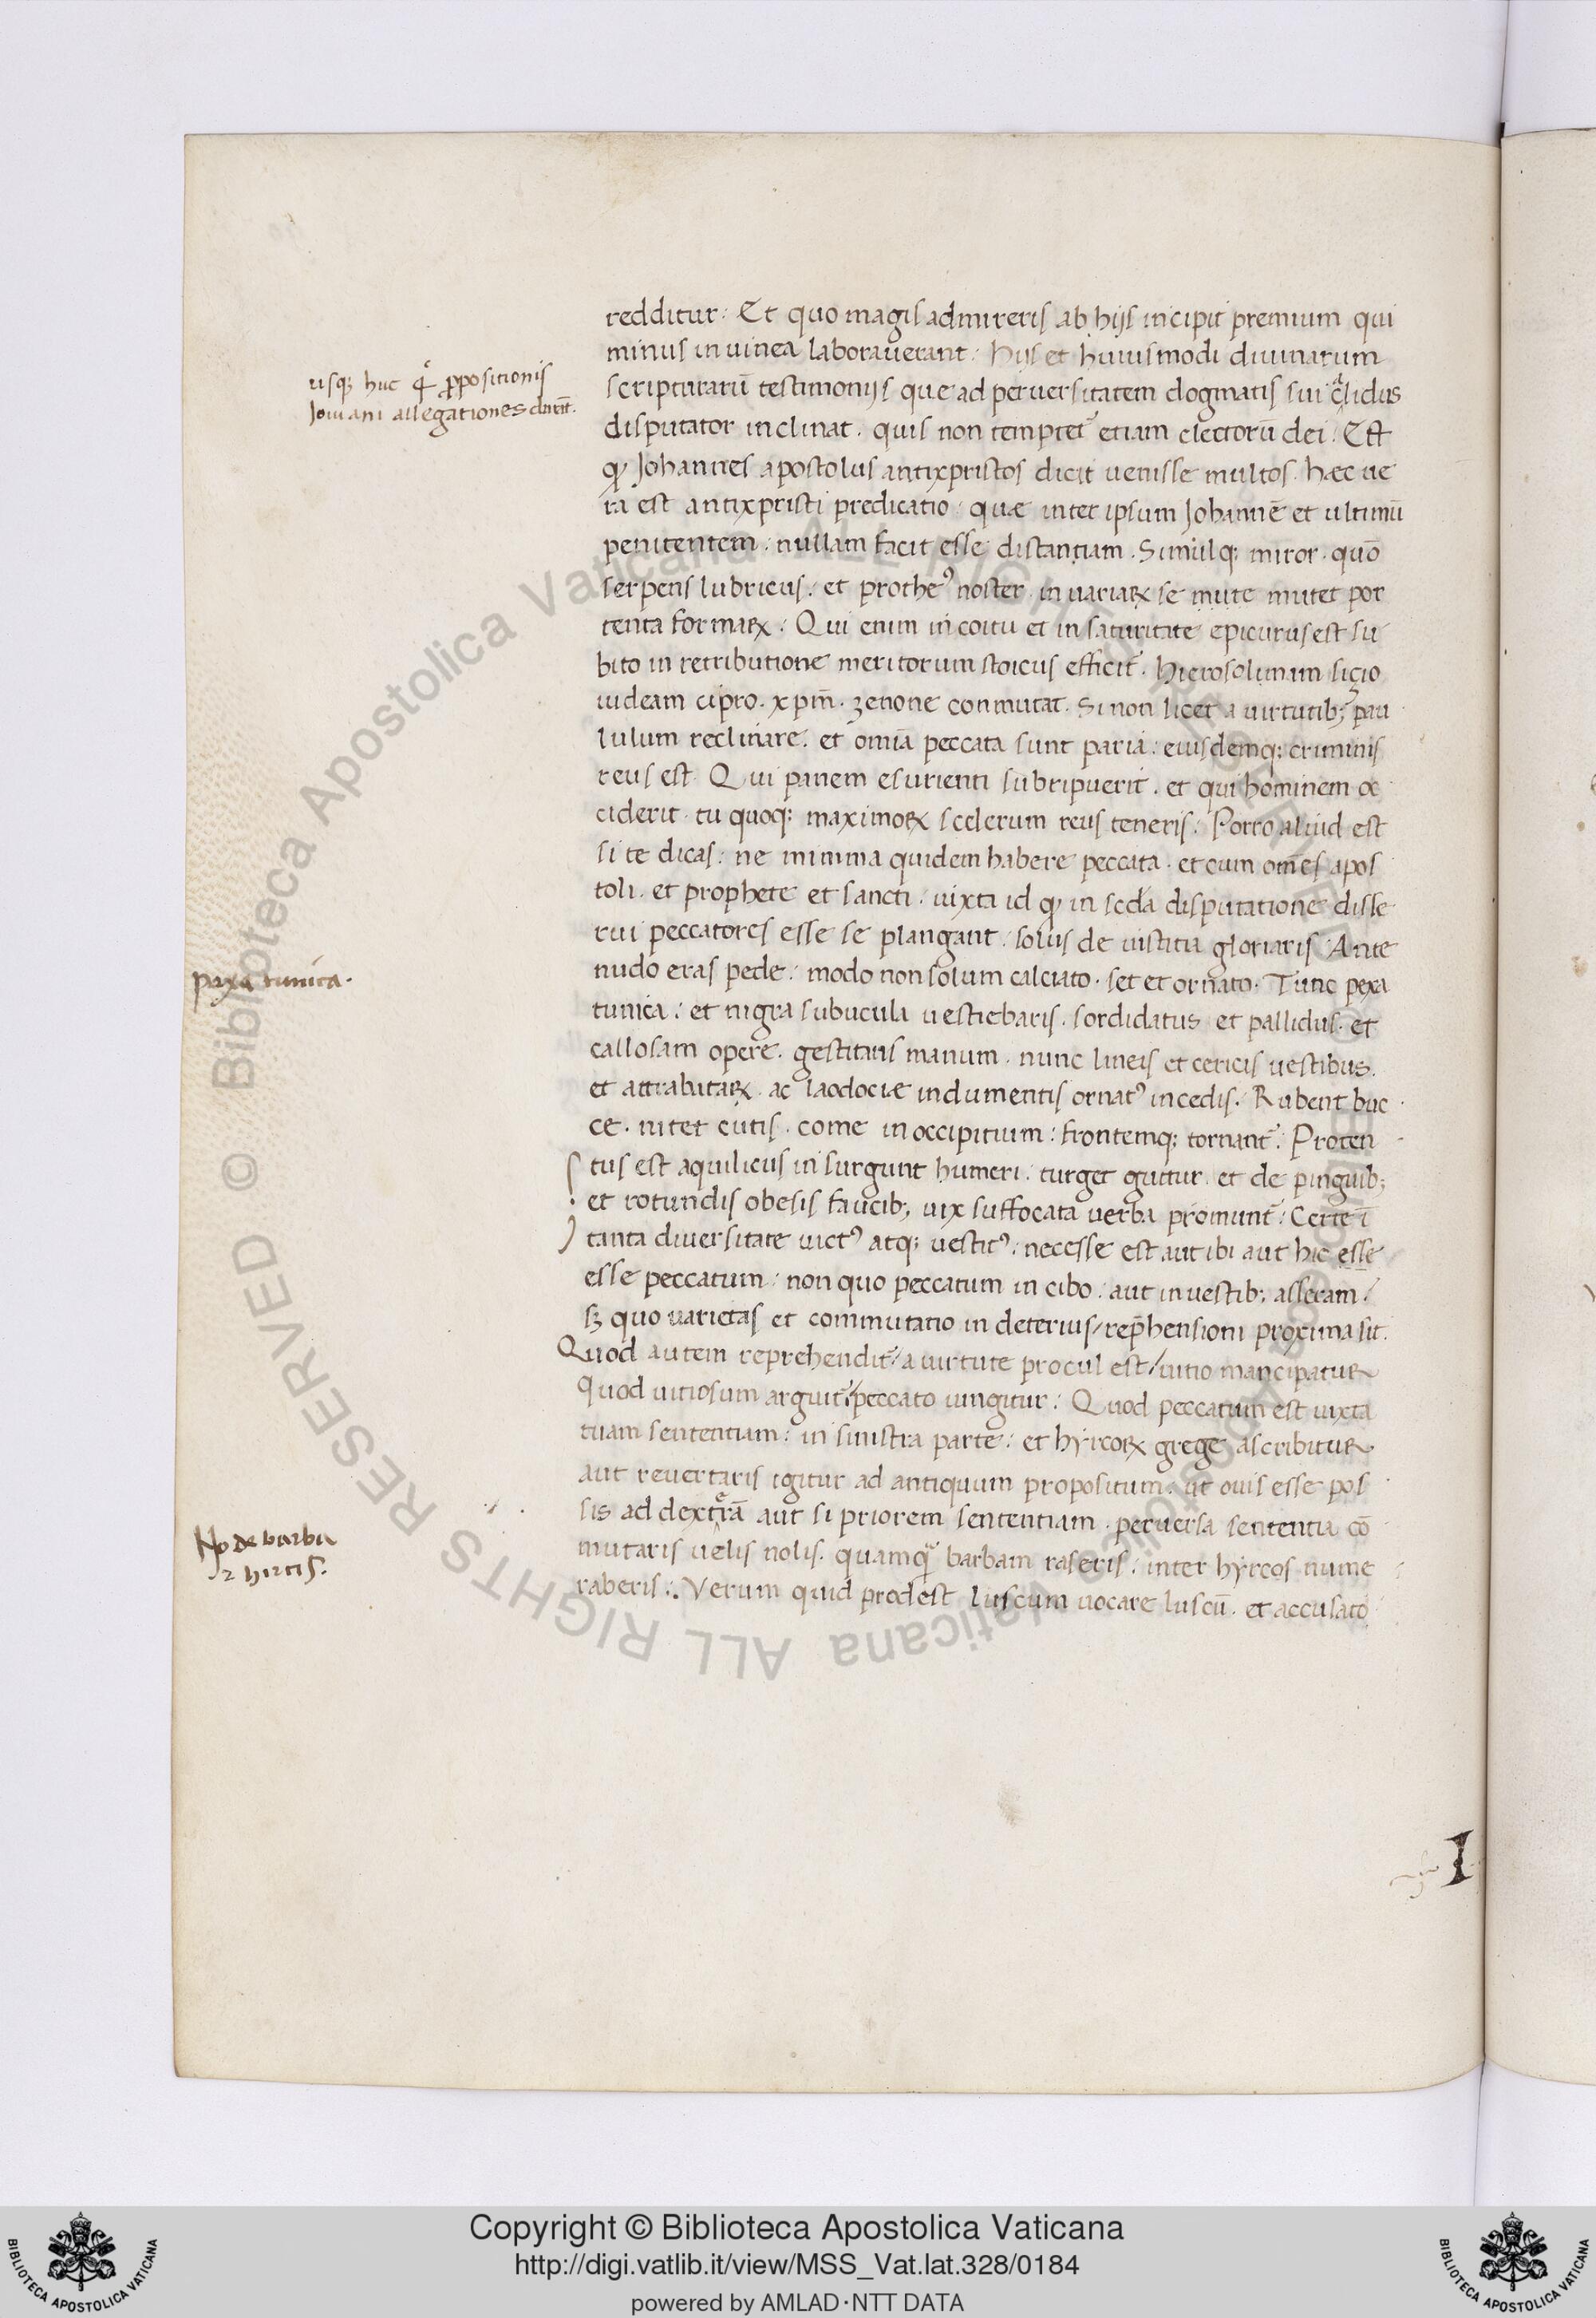 redditur· Et quo magis admireris ab hijs incipit premium qui
minus in uinea laborauerant· Hijs et huiusmodi diuinarum
usq; huc
Iouiani allegationes
scripturarū testimonijs que ad peruersitatem dogmatis sui callidus
disputator inclinat· quis non temptet̄ etiam electorū dei· Est
Johannes apostolus antixpristos dicit uenisse multos· hæc ue
ra est antixpristi predicatio· quæ inter ipsum Johannē et ultimū
penitentem· nullam facit esse distantiam· Simulq; miror· quō
serpens lubricus· et prothe⁹ noster in uariaꝝ se mute mutet por
tenta formaꝝ· Qui enim in coitu et in saturitate epicurus est su
bito in retributione meritorum stoicus efficit̄· Hierosolimam sicio
iudeam cipro· xpm̄· zenone conmutat· Si non licet a uirtutib; pau
lulum reclinare· et om̄ia peccata sunt paria· eiusdemq; criminis
reus est· Qui panem esurienti subripuerit· et qui hominem oc
ciderit· tu quoq; maximoꝝ scelerum reus teneris· Porro aliud est
si te dicas· ne minima quidem habere peccata· et cum om̄es apos
toli· et prophete et sancti· iuxta id ꝙ in scda disputatione disse
rui peccatores esse se plangant· solus de iustitia gloriaris· Ante
pexa tunica·
nudo eras pede· modo non solum calciato· set et ornato· Tunc pexa
tunica· et nigra subucula uestiebaris· sordidatus et pallidus· et
callosam opere· gestitans manum· nunc lineis et cericis uestibus·
et attrabutaꝝ· ac laodociæ indumentis ornat⁹ incedis· Rubent buc
ce· nitet cutis· come in occipitium· frontemq; tornant̄· Proten
tus est aquilicus insurgunt humeri· turget guttur· et de pinguib;
et rotundis obesis faucib; uix suffocata uerba promunt̄· Certe ī
tanta diuersitate uict⁹ atq; uestit⁹· necesse est aut ibi aut hic esse
esse peccatum· non quo peccatum in cibo· aut in uestib; asseram/
sꝫ quo uarietas et commutatio in deterius/ rep̄hensioni proxima sit·
Quod autem reprehendit̄/ a uirtute procul est/ uitio mancipatur
Quod uitiosum arguit̄/ peccato iungitur· Quod peccatum est iuxta
tuam sententiam· in sinistra parte· et hyrcoꝝ grege ascribitur
aut reuertaris igitur ad antiquum propositum· ut ouis esse pos
sis ad dexterā aut si priorem sententiam· peruersa sententia cō
de barba
hircis·
mutaris uelis nolis· quamq̃ barbam raseris· inter hyrcos nume
raberis· Verum quid prodest luscum uocare luscū· et accusato
I
Copyright © Biblioteca Apostolica Vaticana
http://digi.vatlib.it/view/MSS_Vat.lat.328/0184
powered by AMLAD·NTT DATA
BIBLIOTECA APOSTOLICA VATICANA
BIBLIOTECA APOSTOLICA VATICANA
© Biblioteca Apostolica Vaticana ALL RIGHTS RESERVED